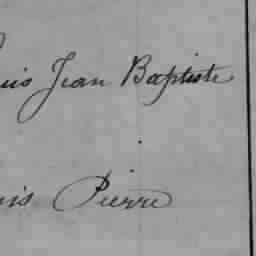 uis Jean Baptiste
uis Pierre